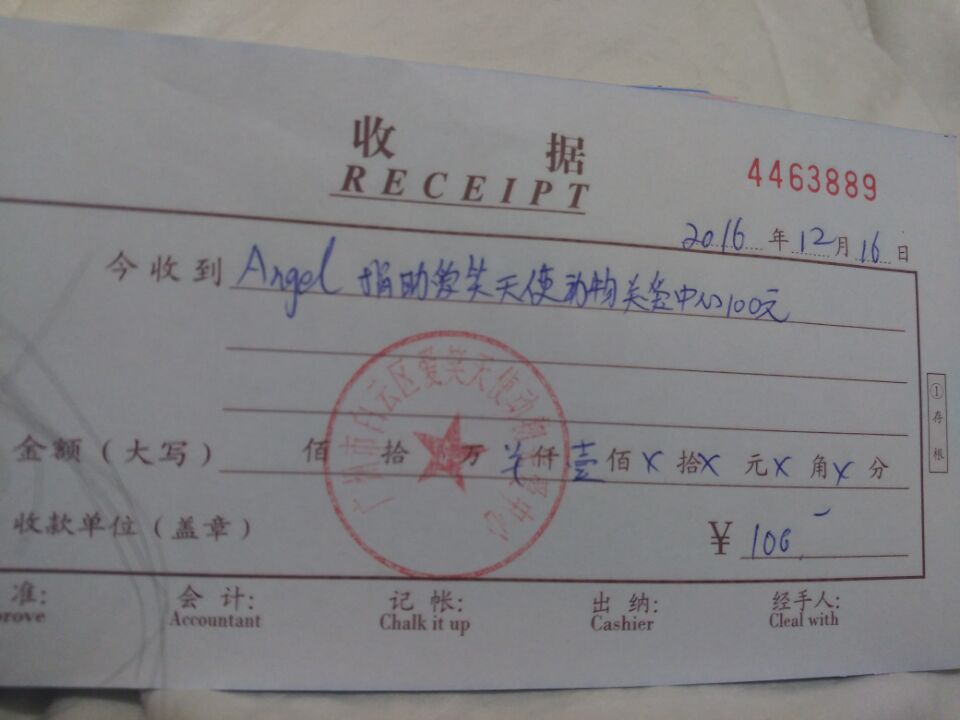 收据
RECEIPT
4463889
2016年12月16日
今收到 Angel 捐助爱笑天使动物关爱中心100元
金额(大写) 佰 拾 万 仟 壹 佰 X 拾 X 元 X 角 X 分
①存根
收款单位(盖章) ¥ 100
广州市白云区爱笑天使动物 中心
准: 会计: 记帐: 出纳: 经手人:
rove Accountant Chalk it up Cashier Cleal with